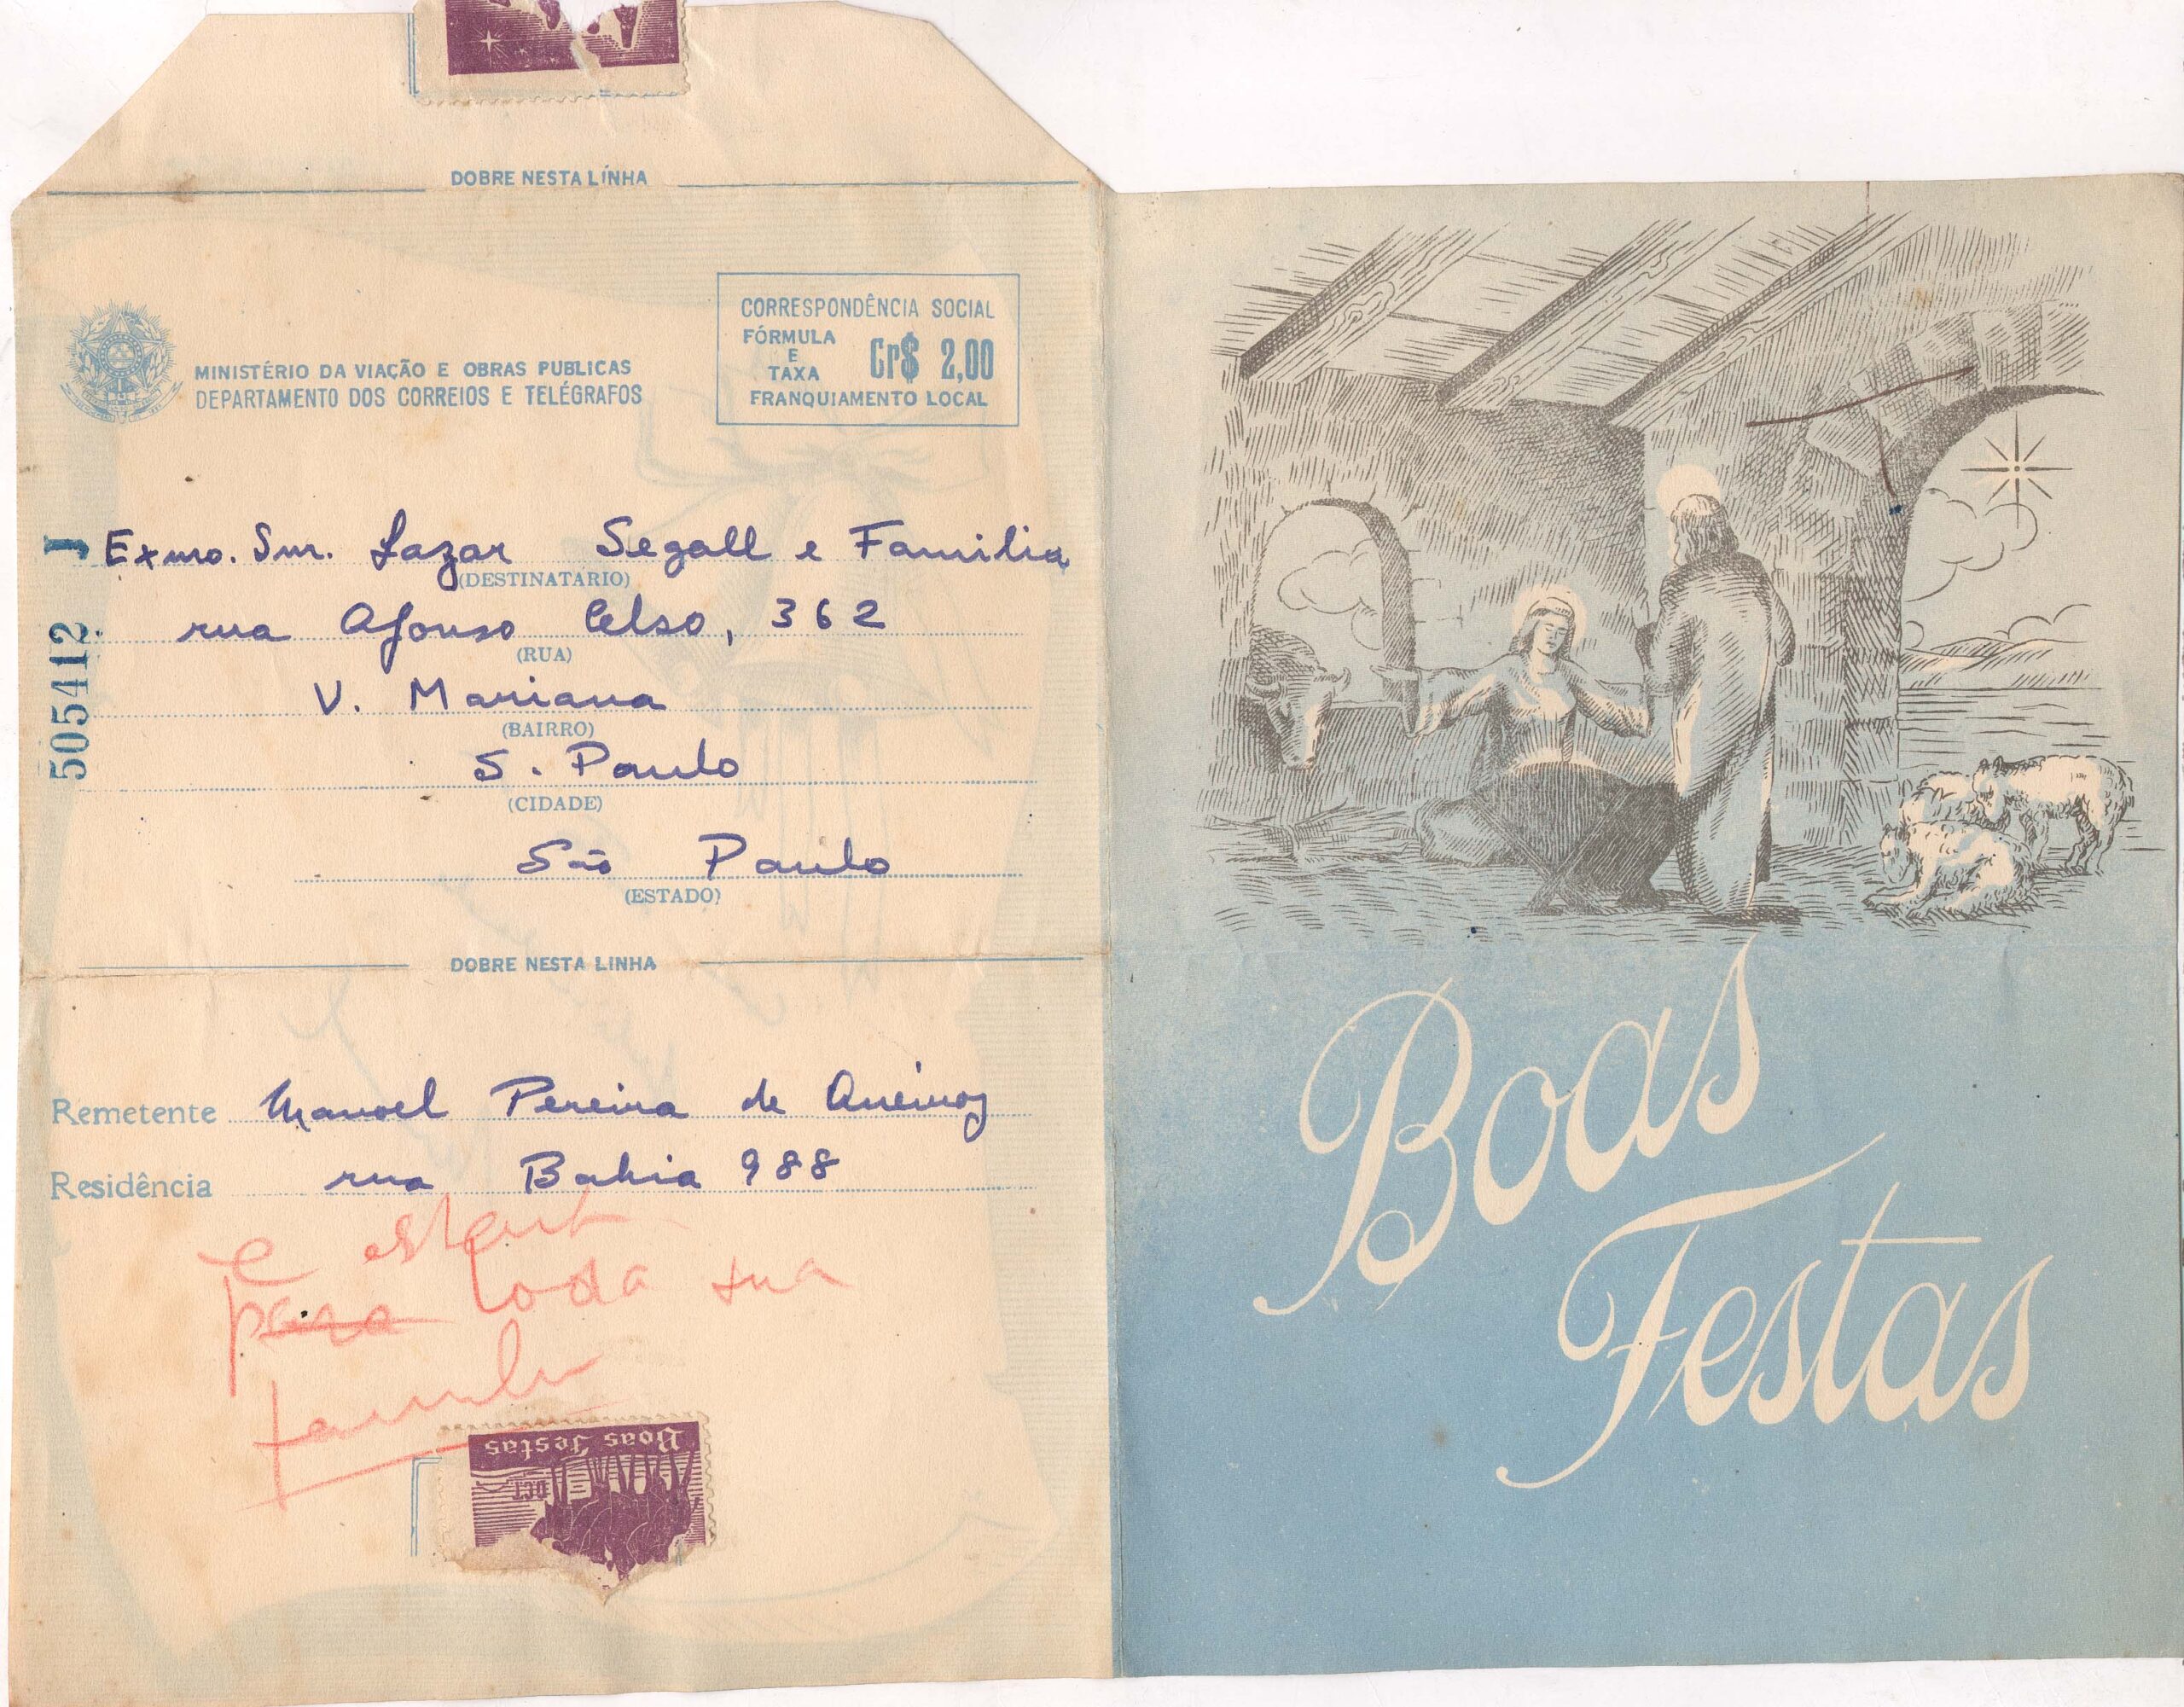 DOBRE NESTA LINHA
MINISTÉRIO DA VIAÇÃO E OBRAS PUBLICAS
DEPARTAMENTO DOS CORREIOS E TELÉGRAFOS
CORRESPONDÊNCIA SOCIAL
FÓRMULA
E
TAXA
Cr$ 2,00
FRANQUIAMENTO LOCAL
J 505412
Exmo. Snr. Lazar Segall e Familia
(DESTINATÁRIO)
rua Afonso Celso, 362
(RUA)
V. Mariana
(BAIRRO)
S. Paulo
(CIDADE)
São Paulo
(ESTADO)
DOBRE NESTA LINHA
Remetente Manoel Pereira de Queiroz
Residência rua Bahia 988
e
para toda sua
Boas Festas
DCT
Boas
Festas